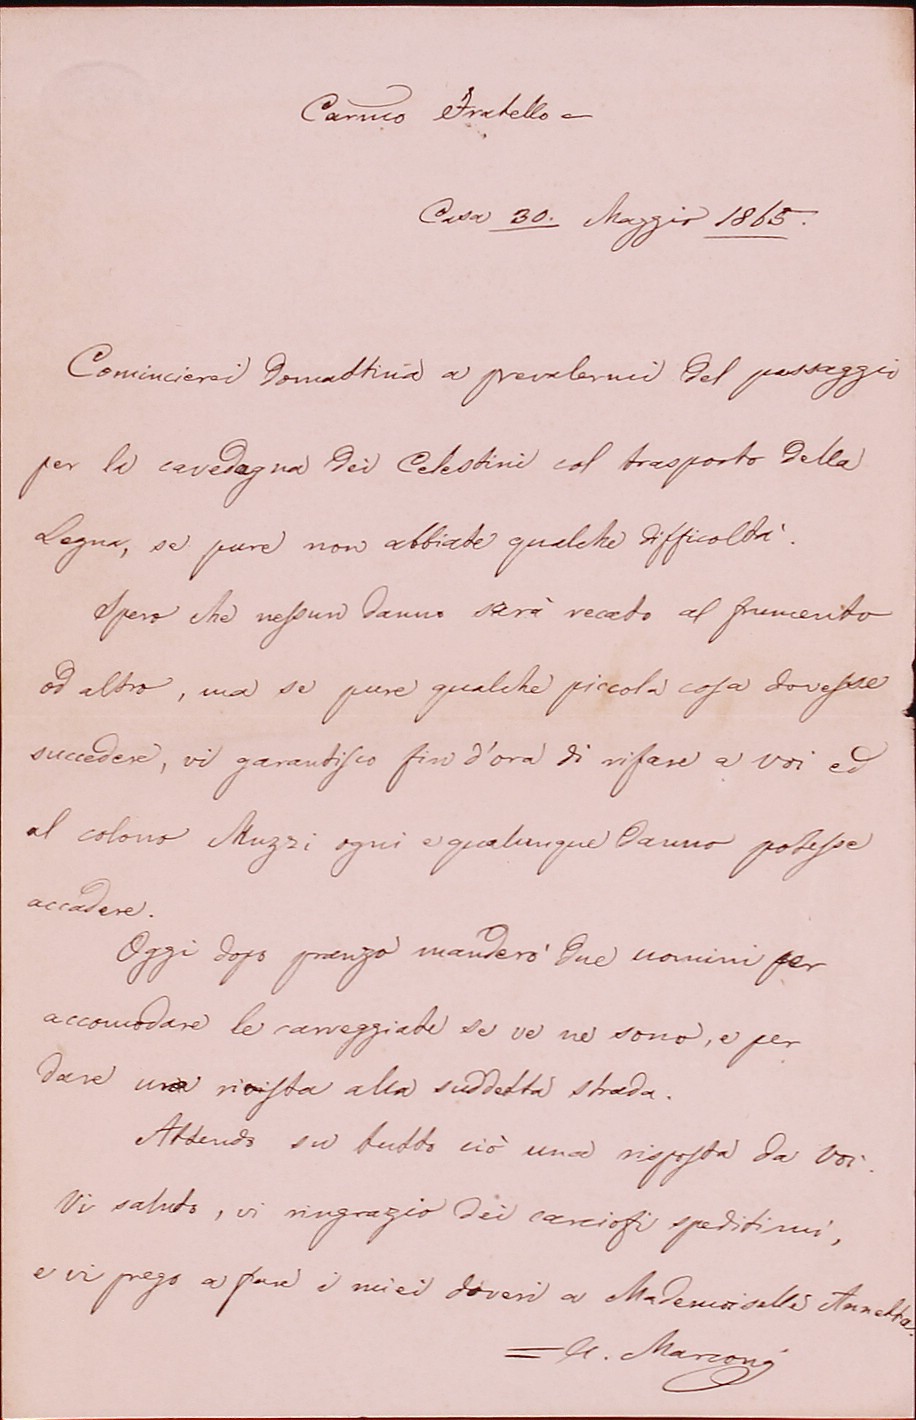 Carmo Fratello =
Casa 30. Maggio 1865.
Comincierei domattina a prevalermi del passaggio
per la cavedagna dei Celestini col trasporto della
Legna, se pure non abbiate qualche difficoltà.
Spero che nessun danno sarà recato al frumento
od altro, ma se pure qualche piccola cosa dovesse
succedere, vi garantisco fin d'ora di rifare a voi ed
al colono Muzzi ogni e qualunque danno potesse
accadere.
Oggi dopo pranzo manderò due uomini per
accomodare le carreggiate se ve ne sono, e per
dare una rivista alla suddetta strada.
Attendo su tutto ciò una risposta da voi.
Vi saluto, vi ringrazio dei carciofi speditimi,
e vi prego a fare i miei doveri a Mademoiselle Annetta.
= Marconi